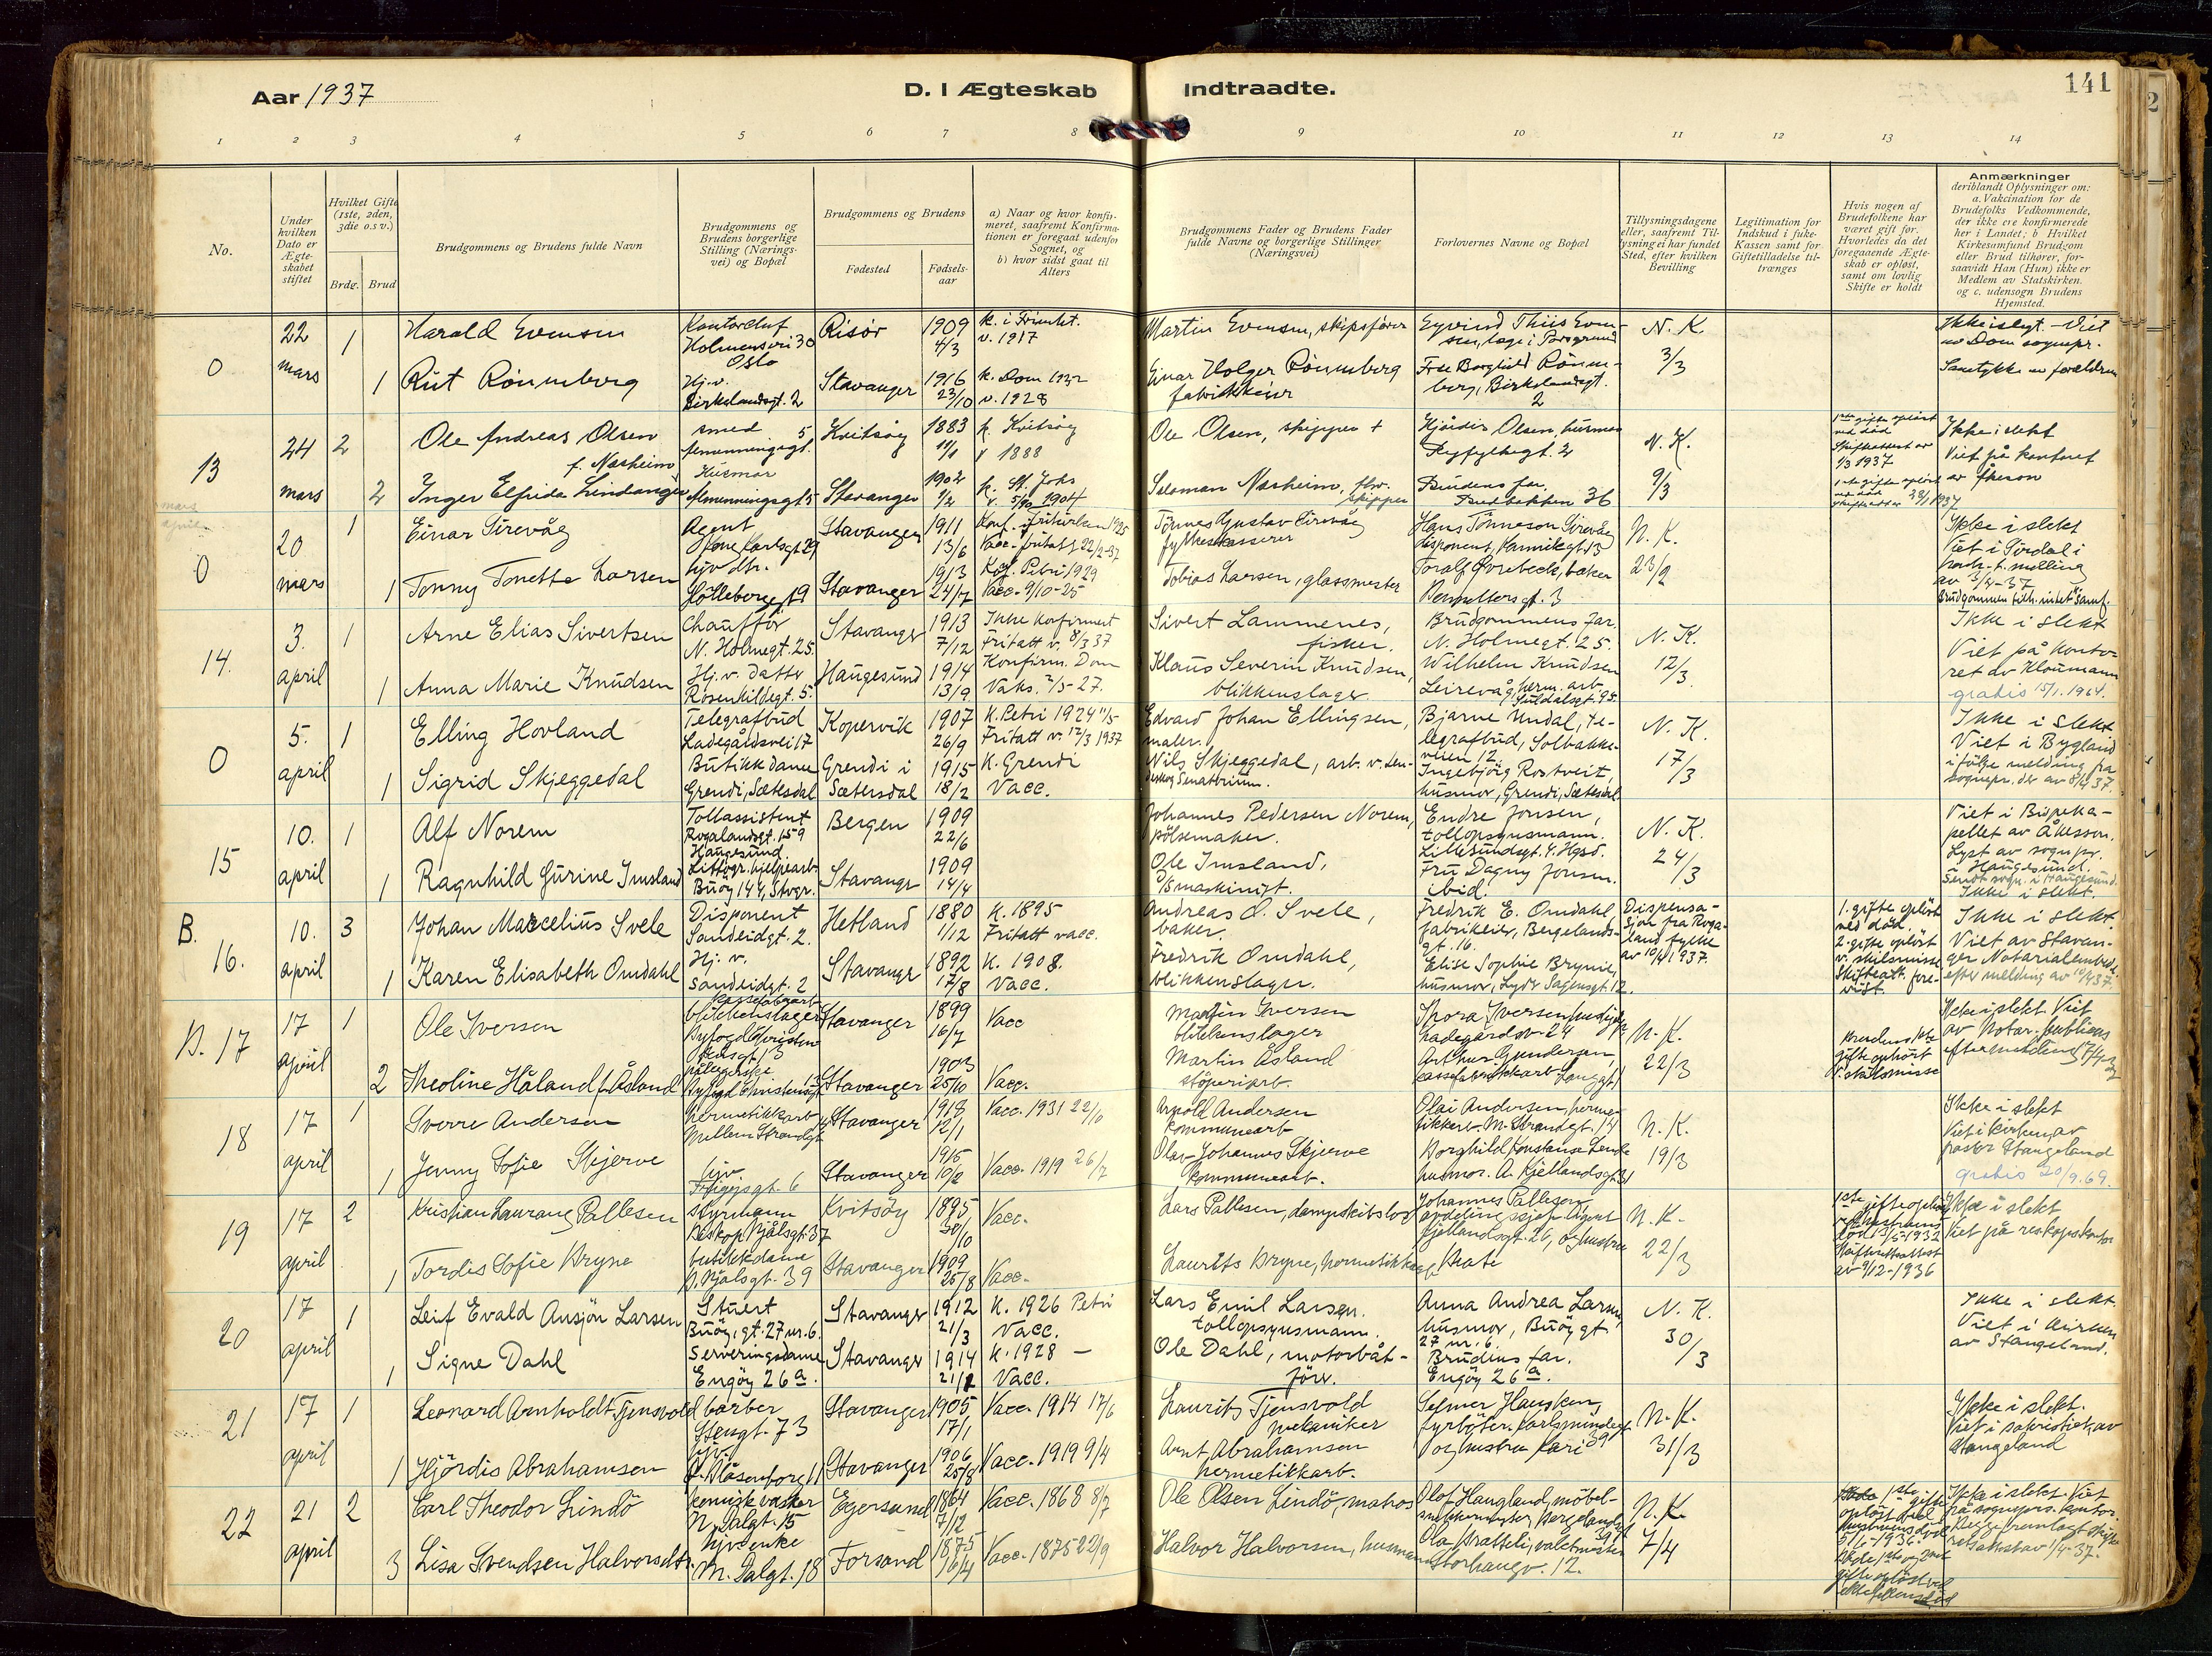 Aar 1937
D. I Ægteskab Indtraadte.
141
1 2 3 4 5 6 7 8 9 10 11 12 13 14
No.
Under hvilken Dato er Ægteskabet stiftet
Hvilket Gifte (1ste, 2den, 3die o.s v.)
Brdg. Brud
Brudgommens og Brudens fulde Navn
Brudgommens og Brudens borgerlige Stilling (Nærings-vei) og Bopæl
Brudgommens og Brudens
Fødested
Fødsels-aar
a) Naar og hvor konfir-
meret, saafremt Konfirma-
tionen er foregaat udenfor
Sognet, og
b) hvor sidst gaat til
Alters
Brudgommens Fader og Brudens Fader
fulde Navne og borgerlige Stillinger
(Næringsvei)
Forlovernes Navne og Bopæl
Tillysningsdagene
eller, saafremt Til-
lysning ei har fundet
Sted, efter hvilken
Bevilling
Legitimation for
Indskud i fuke-
Kassen samt for
Giftetilladelse til-
trænges
Hvis nogen af
Brudefolkene har
været gift før.
Hvorledes da det
foregaaende Ægte-
skab er opløst,
samt om lovlig
Skifte er holdt
Anmærkninger
deriblandt Oplysninger om:
a. Vakcination for de
Brudefolks Vedkommende,
der ikke ere konfirmerede
her i Landet; b Hvilket
Kirkesamfund Brudgom
eller Brud tilhører, for-
saavidt Han (Hun) ikke er
Medlem av Statskirken.
og c. udensogn Brudens
Hjemsted.
0
22 mars
1 Harald Evensen
Holmenvei 30 Oslo
Risör
1909 4/3
v. 1917
Martin Evensen, skipsförer
N. K. 3/3
1
Hj.v.
Birkelandsgt. 2
Stavanger
1916 23/10
k. Dom 1932
v. 1928
Einar Holger
Birkelandsgt. 2
Samtykke av foreldrene
13
24 mars
2 Ole Andreas Olsen
smed
Kvitsöy
1883 11/1
k. Kvitsöy
v 1888
Ole Olsen, skipper +
Hjördis Olsen, husmor
Ryfylkegt. 2
N. K. 9/3
Ikke i slekt
Viet på kontoret
av Åkeson
f. Næsheim
2 Inger Elfrida Lindanger
Husmor
Almenningsgt 5
Stavanger
1902 9/2
v. 5/10 1904
Salomon Næsheim, fhv. skipper
Brudens far.
0
20 mars
1 Einar Sirevåg
Agent
Stavanger
1911 13/6
Tönnes Gustav Sirevåg
fylkeskasserer
Hans Tönneson Sirevåg
disponent, Kannikgt 13
N. K. 23/2
Ikke i slekt
Viet i Sirdal i
1 Tonny Tonette Larsen
Stavanger
1913 24/7
Konf. Petri 1929
Vacc. 9/10-25
Tobias Larsen, glassmester
Toralf Övrebeck, baker
14.
3. april
1 Arne Elias Sivertsen
Chaufför
N. Holmegt. 25
Stavanger
1913 7/12
Ikke konfirmert
Fritatt v. 8/3 37
Sivert Lammenes,
fisker.
Brudgommens far.
N. Holmegt. 25.
N. K. 12/3.
Ikke i slekt
Viet på konto-
ret av Kloumann
gratis 15/1. 1964.
1 Anna Marie Knudsen
Hj. v. datter
Rosenkildegt. 5
Haugesund
1914 13/9
Konfirm. Dom
Vaks. 2/5-27.
Klaus Severin Knudsen,
blikkenslager
Wilhelm Knudsen
Leirevåg, herm. arb
Suldalsgt. 95.
0
5. april
1 Elling Hovland
Telegrafbud
Ladegårdsvei 17
Kopervik
1907 26/9
K. Petri 1924 11/5
Fritatt v. 12/3 1937
Edvard Johan Ellingsen,
maler.
Bjarne Undal, te-
legrafbud, Solbakke-
veien 12
N. K. 17/3
Ikke i slekt
Viet i Bygland
i fölge melding fra
sognepr. der av 8/4 37.
1 Sigrid Skjeggedal
Butikkdame
Grendi, Sætesdal
Grendi i Sætersdal
1915 18/2
K. Grendi
Vacc.
Nils Skjeggedal, arb. v.
Ingebjörg Rostveit,
husmor, Grendi, Sætesdal
15
10. april
1 Alf Norem
Tollassistent
Rogalandsgt. 159
Haugesund
Bergen
1909 22/6
Johannes Pedersen Norem,
pölsemaker.
Endre Jonsen,
tollopsynsmann.
Lillesundsgt. 4. Hgsd.
N. K. 24/3
Viet i Bispeka-
pellet av Åkesson.
Lyst av sognepr.
i Haugesund.
Ikke i slekt.
1 Ragnhild Gurine Imsland
Buöy 144, Stvgr.
Stavanger
1909 14/4
Ole Imsland,
maskinist.
Fru Dagny Jonsen.
ibid.
B. 16.
10. april
3 Johan Marcelius Svele
Disponent
Sandeidgt. 2.
Hetland
1880 1/12
K. 1895
Fritatt vacc.
Andreas O. Svele,
baker.
Fredrik E. Omdahl,
fabrikeier, Bergelands-
gt. 16.
Dispensa-
sjon fra Roga-
land fylke
av 10/4 1937.
1. gifte oplöst
ved död.
2. gifte oplöst
v. skilsmisse
Skifteatt. fore-
vist.
Ikke i slekt.
Viet av Stavan-
ger Notarialembede
efter melding av 10/4 37.
1 Karen Elisabeth Omdahl
Hj. v.
Sandeidgt. 2
Stavanger
1892 17/8
K. 1908.
Vacc.
Fredrik Omdahl,
blikkenslager.
Elise Sophie Brynie,
husmor, Lyder Sagensgt. 12.
N. 17
17 april
1 Ole Iversen
blikkenslager
Stavanger
1899 16/7
Vacc
Martin Iversen
blikkenslager
Thora Iversen
Ladegårdsv. 24
N. K. 22/3
Brudens 1ste
gifte ophört
v. skilsmisse
Ikke i slekt Viet
av Notar. publicus
efter melding 17/4-37
2 Theoline Håland f. Åsland
Stavanger
1903 25/10
Vacc.
Martin Åsland
stöperiarb.
Arthur Gundersen
18
17 april
1 Sverre Andersen
hermetikkarb
Mellem Strandgt
Stavanger
1918 12/1
Vacc. 1931 22/10
Arnold Andersen
kommunearb
Olai Andersen, herme-
tikkarb. M. Strandgt.
N. K. 19/3
Ikke i slekt
Viet i kirken av
pastor Stangeland
gratis 20/9.69.
1 Jenny Sofie Skjerve
hjv
Stavanger
1915 10/2
Vacc. 1919 26/7
Olav Johannes Skjerve
kommunearb.
Borghild Konstanse Lende
husmor. A. Kjellandsgt.
19
17 april
2 Kristian Laurang Pallesen
styrmann
Kvitsöy
1895 30/10
Vacc.
Lars Pallesen, dampskibslos
Johannes Pallesen
N. K. 22/3
av 9/12-1936
Ikke i slekt
Viet på reskaps.kontor
1 Tordis Sofie Bryne
butikkdame
B. Njålsgt. 39
Stavanger
1909 25/8
Vacc.
Laurits Bryne,
Beate
20
17 april
1 Leif Evald Ansjön Larsen
Stuert
Buöy, gt. 27 nr. 6.
Stavanger
1912 21/3
K. 1926 Petri
Vacc.
Lars Emil Larsen.
tollopsynsmann.
Anna Andrea Larsen,
husmor, Buöy gt
27 nr. 6.
N. K. 30/3
Ikke i slekt.
Viet i kirken
av Stangeland.
1 Signe Dahl
Serveringsdame
Engöy 26a.
Stavanger
1914
K. 1928 —
Vacc.
Ole Dahl, motorbåt-
förer.
Brudens far.
Engöy 26a.
21
17 april
1 Leonard Arnholdt Tjensvold
barber
Stengt. 73
Stavanger
1905 17/1
Vacc. 1914 17/6
Laurits Tjensvold
mekaniker
Selmer Hausken,
fyrböter.
og hustru Kari
N. K. 31/3
Ikke i slekt.
Viet i sakristiet av
Stangeland
1 Hjördis Abrahamsen
hjv.
Stavanger
1906 25/8
Vacc. 1919 9/4
Arnt Abrahamsen
hermetikkarb.
22
21 april
2 Carl Theodor Lindö
kemisk vasker
N. Dalgt. 15
Egersund
1864 7/12
Vacc. 1868 8/7
Ole Olsen Lindö, matros
Olof Haugland, möbel-
N. K. 7/4
Ikke i slekt. Viet
på sognepr. kontor.
3 Lisa Svendsen Halvorsdtr
hjv enke
N. Dalgt. 18
Forsand
1875 10/4
Vacc. 1875 22/9
Halvor Halvorsen, husmann
Storhaugv. 12.